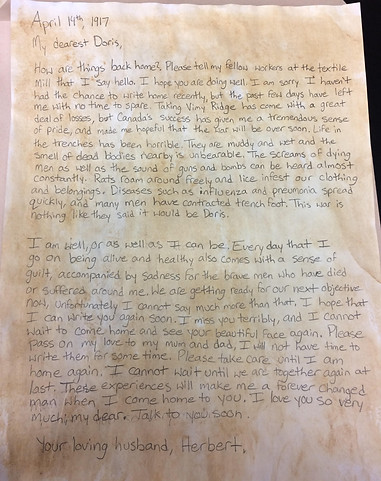 April 14th 1917
My dearest Doris,
How are things back home? Please tell my fellow workers at the textile
Mill that I say hello. I hope you are doing well. I am sorry I haven't
had the chance to write home recently, but the past few days have left
me with no time to spare. Taking Vimy Ridge has come with a great
deal of losses, but Canada's success has given me a tremendous sense
of pride, and made me hopeful that the war will be over soon. Life in
the trenches has been horrible. They are muddy and wet and the
smell of dead bodies nearby is unbearable. The screams of dying
men as well as the sound of guns and bombs can be heard almost
constantly. Rats roam around freely and lice infest our clothing
and belongings. Diseases such as influenza and pneumonia spread
quickly, and many men have contracted trench foot. This war is
nothing like they said it would be Doris.
I am well, or as well as I can be. Every day that I
go on being alive and healthy also comes with a sense of
guilt, accompanied by sadness for the brave men who have died
or suffered around me. We are getting ready for our next objective
now, unfortunately I cannot say much more than that. I hope that
I can write you again soon. I miss you terribly, and I cannot
wait to come home and see your beautiful face again. Please
pass on my love to my mum and dad, I will not have time to
write them for some time. Please take care until I am
home again. I cannot wait until we are together again at
last. These experiences will make me a forever changed
man when I come home to you. I love you so very
much, my dear. Talk to you soon.
Your loving husband, Herbert.